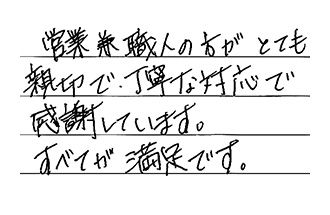 営業兼職人の方がとても
親切で、丁寧な対応で
感謝しています。
すべてが満足です。